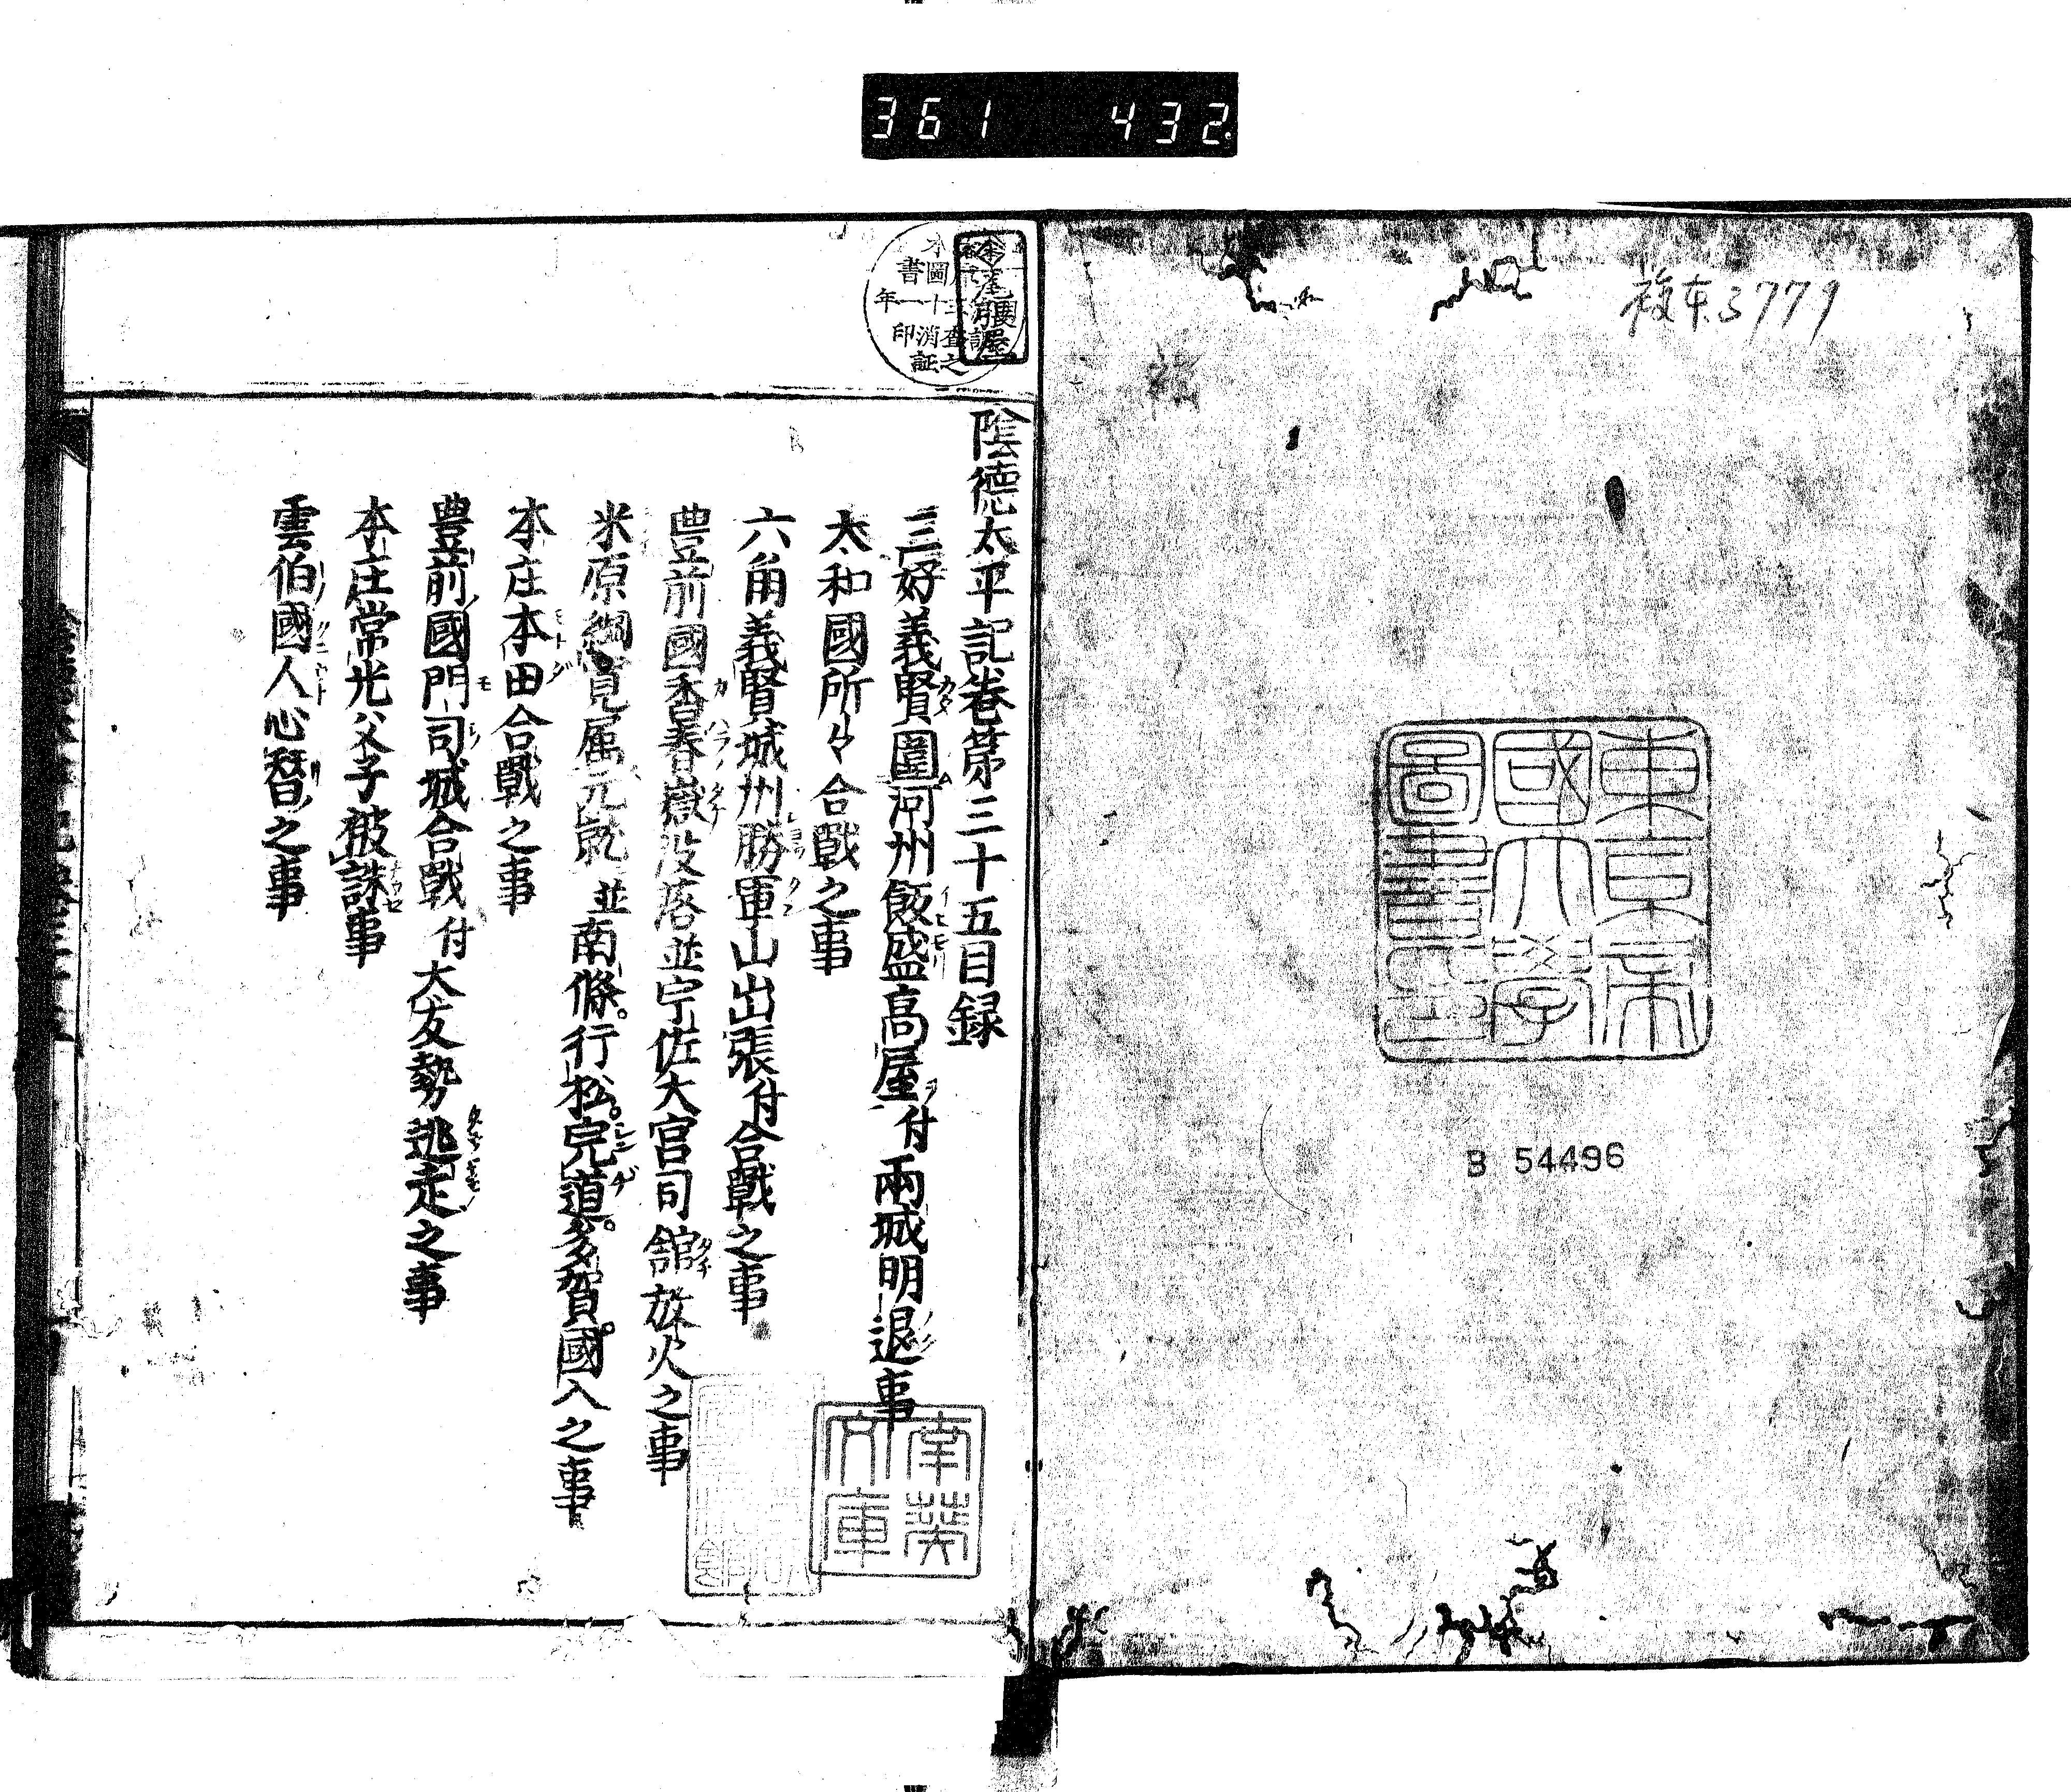 361 432
複本3779
東京帝
國大學
圖書印
B 54496
陰德太平記卷第三十五目録
三好義賢圍河州飯盛高屋付兩城明退事
太和國所々合戰之事
六角義賢城州勝軍山出張付合戰之事
豊前國香春嶽没落並宇佐大官司舘放火之事
米原綱寛属元就並南條。行松。宍道。多賀。國入之事
本庄本田合戰之事
豊前國門司城合戰付大友勢逃走之事
本庄常光父子被誅事
雲伯國人心替之事
南葵
文庫